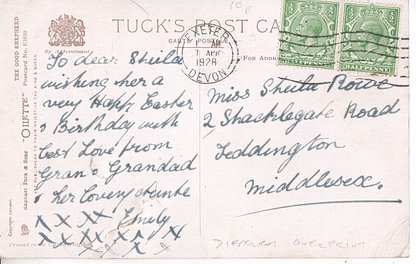 TUCK'S POST CARD
CARTE POSTALE
By Appointment
(FOR ADDRESS
THE GOOD SHEPHERD
Postcard No.
Raphael Tuck & Sons "OILETTE"
EXETER
7 APR
1928
DEVON
To dear Sheila
wishing her a
very Happy Easter
& Birthday with
best Love from
Gran & Grandad
& her loving Auntie
X X XX Emily
XX XX XX X X
X X X
Miss Sheila Rowe
2 Shacklegate Road
Teddington
Middlesex.
Printed in
DIFFERENT OVERPRINT
10p